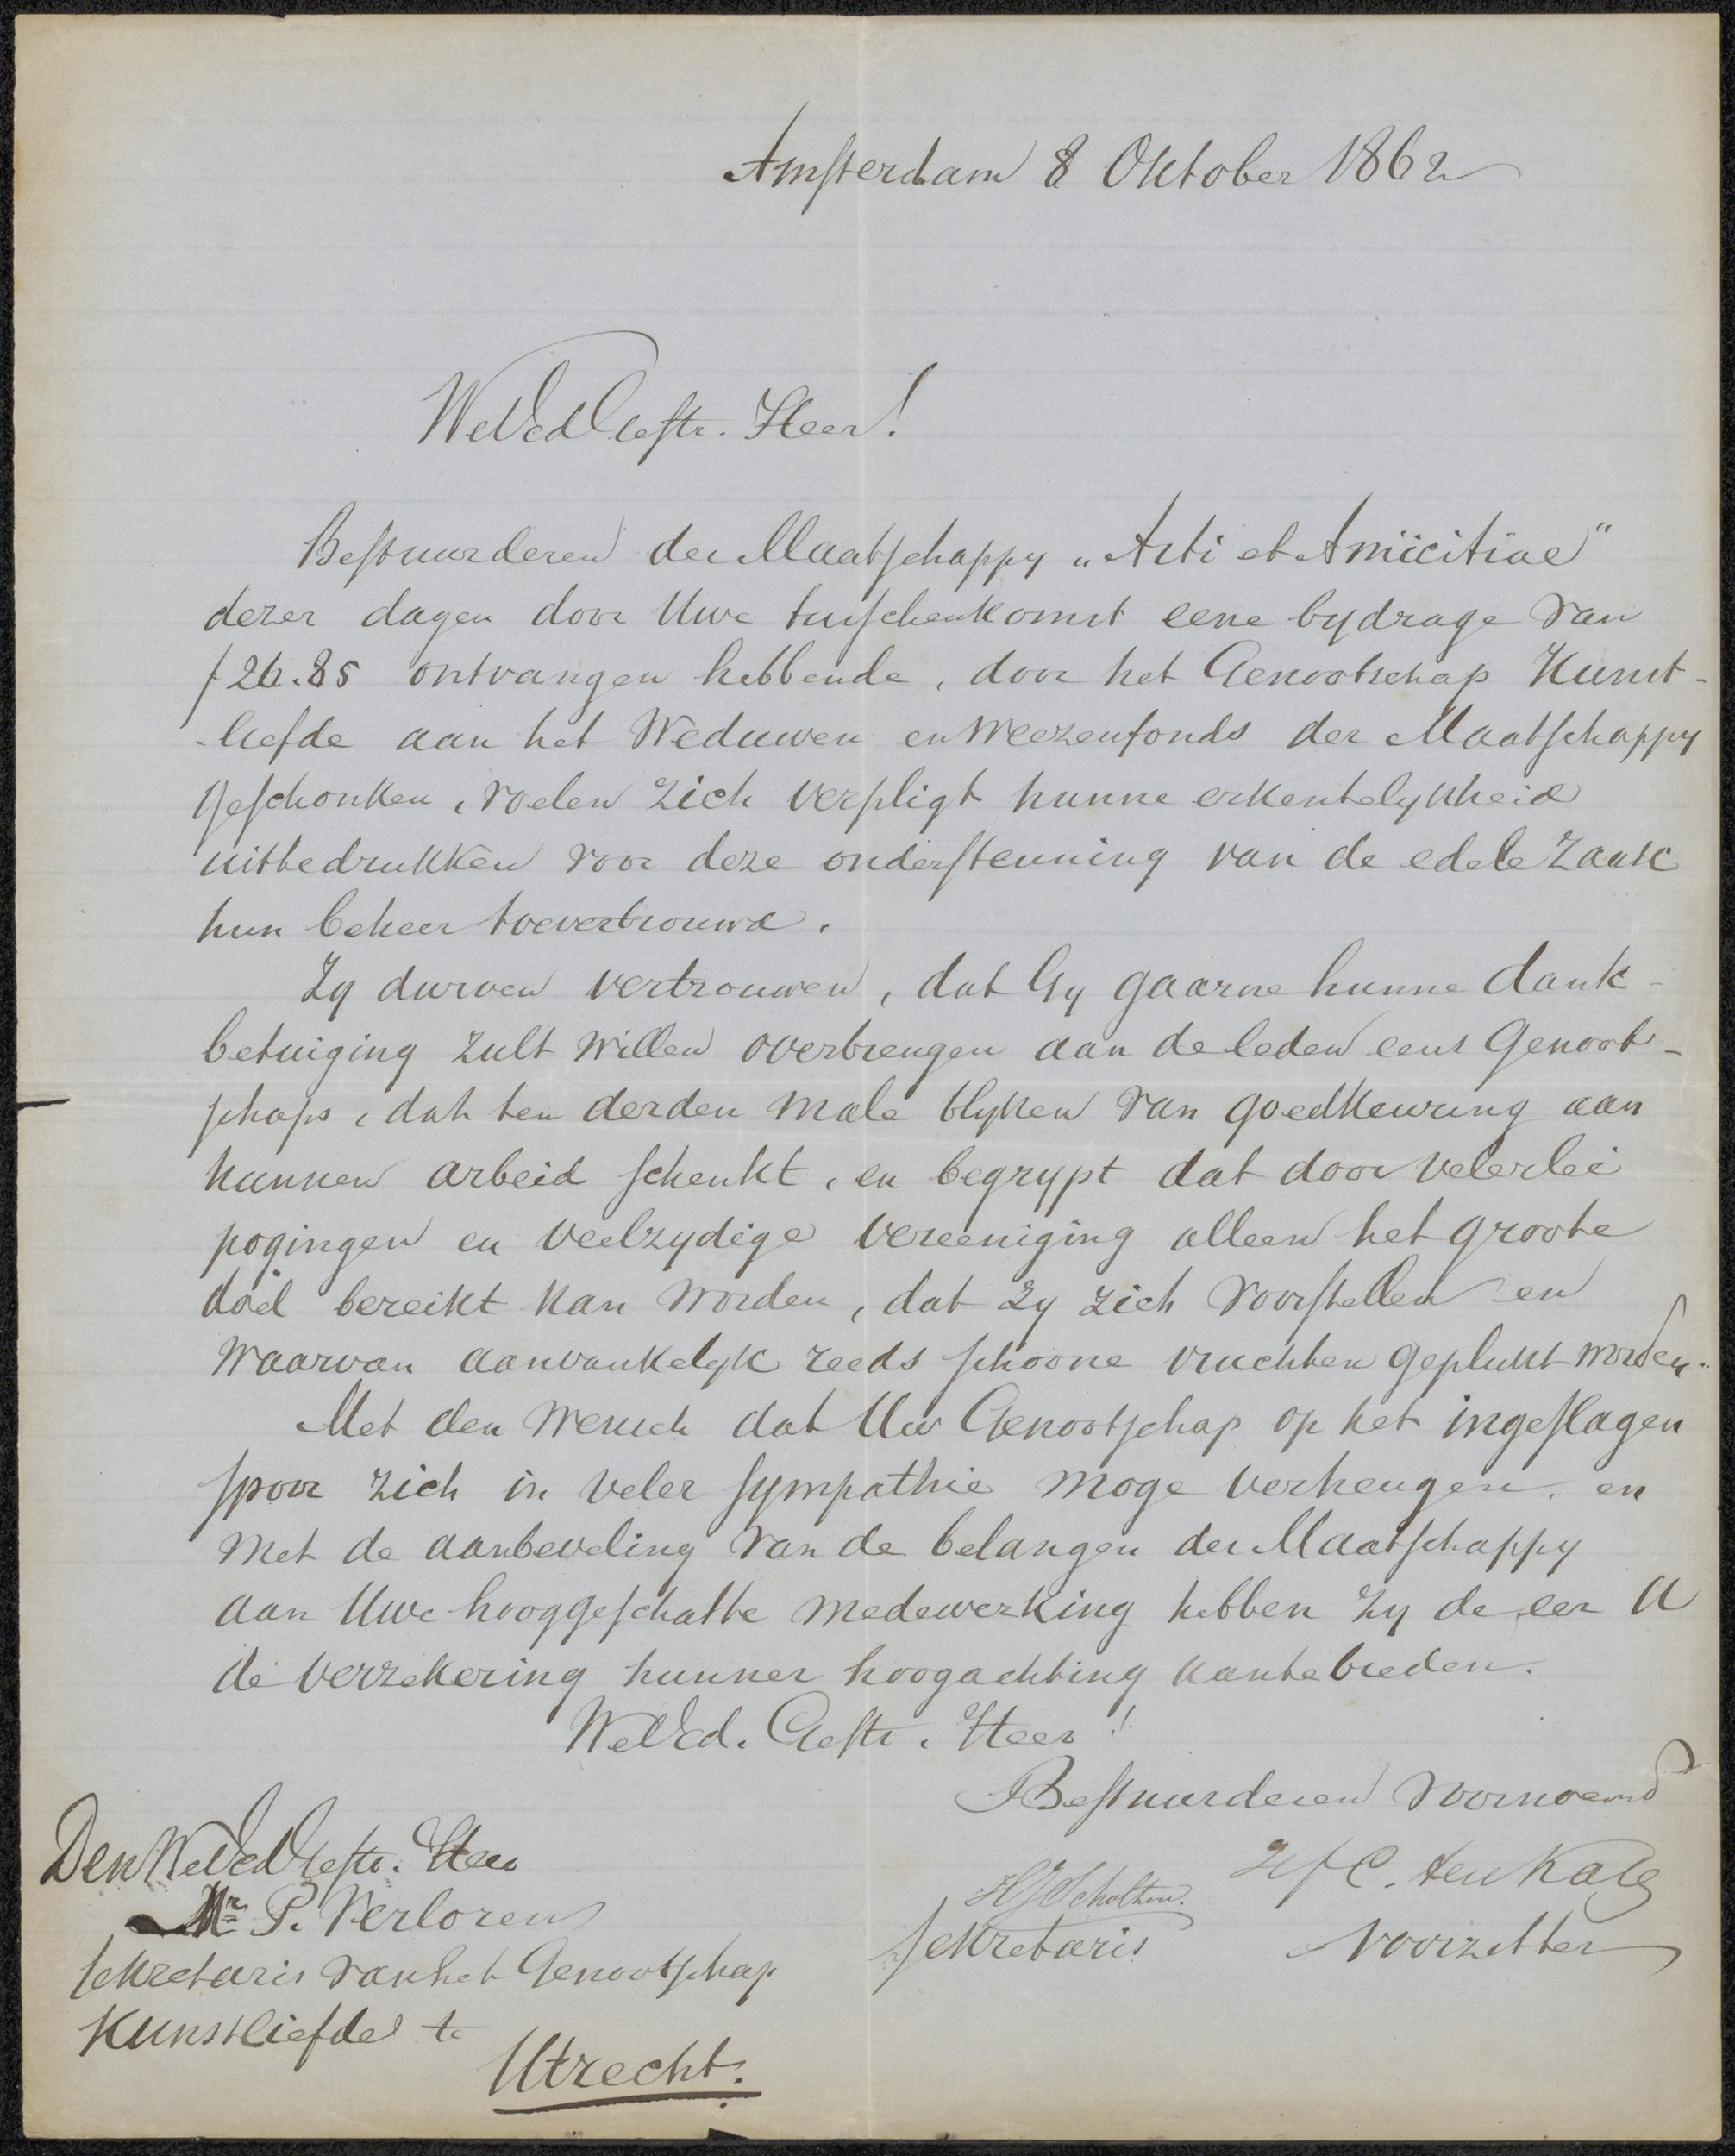 Amsterdam 8 Oktober 1862
WelEdGestr. Heer!
Bestuurderen der Maatschappy „Arti et Amicitiae"
dezer dagen door Uwe tusschenkomst eene bydrage van
f 26.85 ontvangen hebbende, door het Genootschap Kunst-
-liefde aan het Weduwen en Weezenfonds der Maatschappy
geschonken, voelen zich verpligt hunne erkentelykheid
uittedrukken voor deze ondersteuning van de edele zaak
hun beheer toevertrouwd.
Zy durven vertrouwen, dat Gy gaarne hunne dank-
betuiging zult willen overbrengen aan de leden eens Genoot-
schaps, dat ten derden male blyken van goedkeuring aan
hunnen arbeid schenkt, en begrypt dat door velerlei
pogingen en veelzydige vereeniging alleen het groote
doel bereikt kan worden, dat zy zich voorstellen en
waarvan aanvankelyk reeds schoone vruchten geplukt worden.
Met den wensch dat Uw Genootschap op het ingeslagen
spoor zich in veler sympathie moge verheugen, en
met de aanbeveling van de belangen der Maatschappy
aan Uwe hooggeschatte medewerking hebben zy de eer U
de verzekering hunner hoogachting aantebieden.
WelEd. Gestr. Heer!
Bestuurderen voornoemd
H J Scholten.
Sekretaris
H f C. ten Kate
Voorzitter
Den WelEdGestr. Heer
Mr P. Verloren
Sekretaris van het Genootschap
Kunstliefde te
Utrecht.